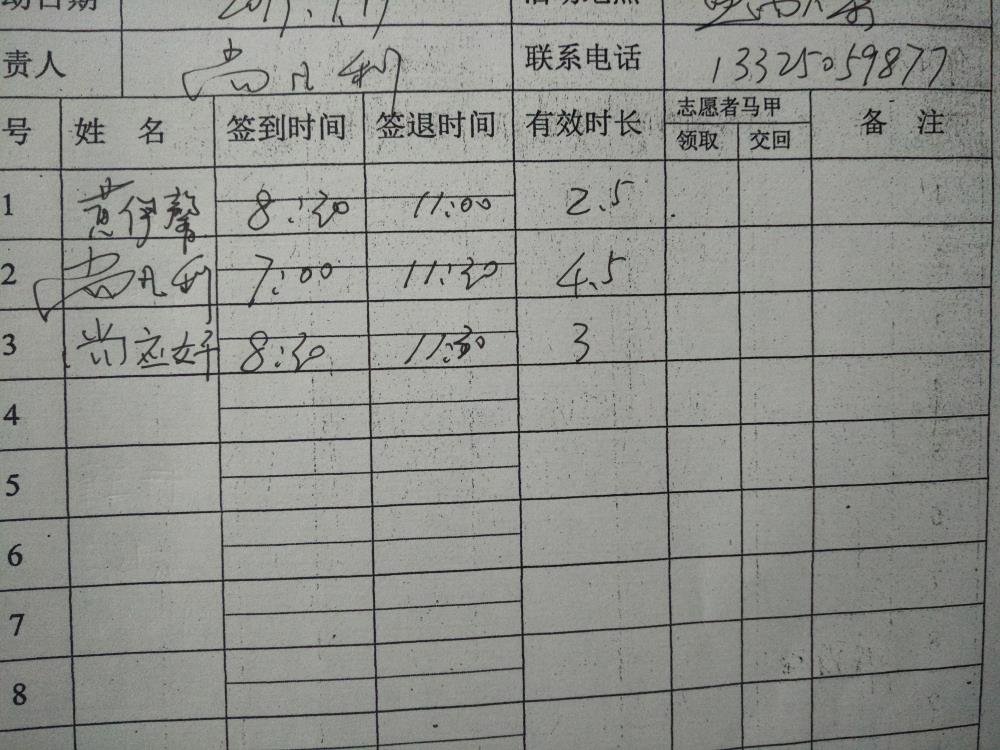 动日期 活动地点
责人 尚凡利 联系电话 13325059877
号 姓 名 签到时间 签退时间 有效时长 志愿者马甲 备 注
领取 交回
1 黄伊馨 8:30 11:00 2.5
2 尚凡利 7:00 11:30 4.5
3 尚应好 8:30 11:30 3
4
5
6
7
8